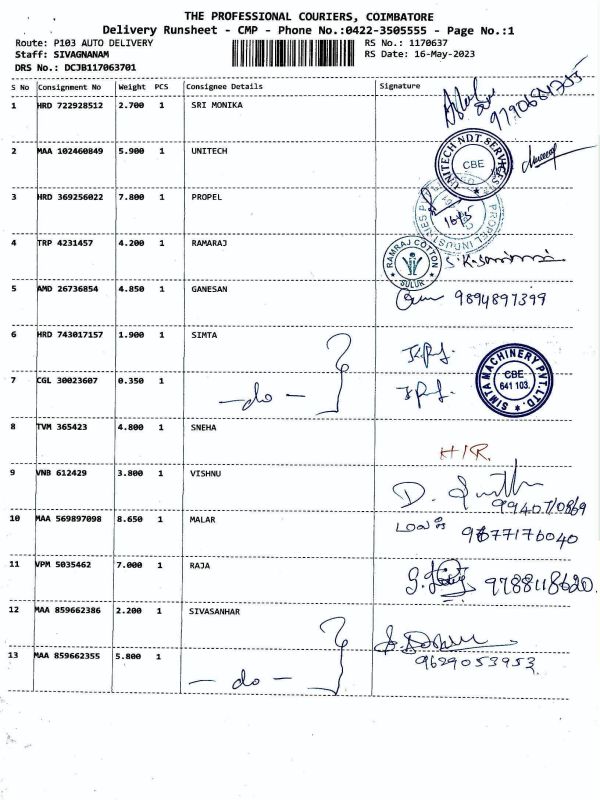 THE PROFESSIONAL COURIERS, COIMBATORE
Delivery Runsheet - CMP - Phone No.:0422-3505555 - Page No.:1
Route: P103 AUTO DELIVERY RS No.: 1170637
Staff: SIVAGNANAM RS Date: 16-May-2023
DRS No.: DCJB117063701
S No Consignment No Weight PCS Consignee Details Signature
1 HRD 722928512 2.700 1 SRI MONIKA
2 MAA 102460849 5.900 1 UNITECH
UNITECH NDT SERVICES CBE
3 HRD 369256022 7.800 1 PROPEL
PROPEL INDUSTRIES P
16/5
4 TRP 4231457 4.200 1 RAMARAJ
RAMRAJ COTTON SULUR
5 AMD 26736854 4.850 1 GANESAN
9894897399
6 HRD 743017157 1.900 1 SIMTA
SIMTA MACHINERY PVT. LTD. CBE 641 103.
7 CGL 30023607 0.350 1 - do -
8 TVM 365423 4.800 1 SNEHA
H/R.
9 VNB 612429 3.800 1 VISHNU
D.
10 MAA 569897098 8.650 1 MALAR
மலர் 9677176040
11 VPM 5035462 7.000 1 RAJA
9788118620
12 MAA 859662386 2.200 1 SIVASANHAR
9629053953
13 MAA 859662355 5.800 1 - do -